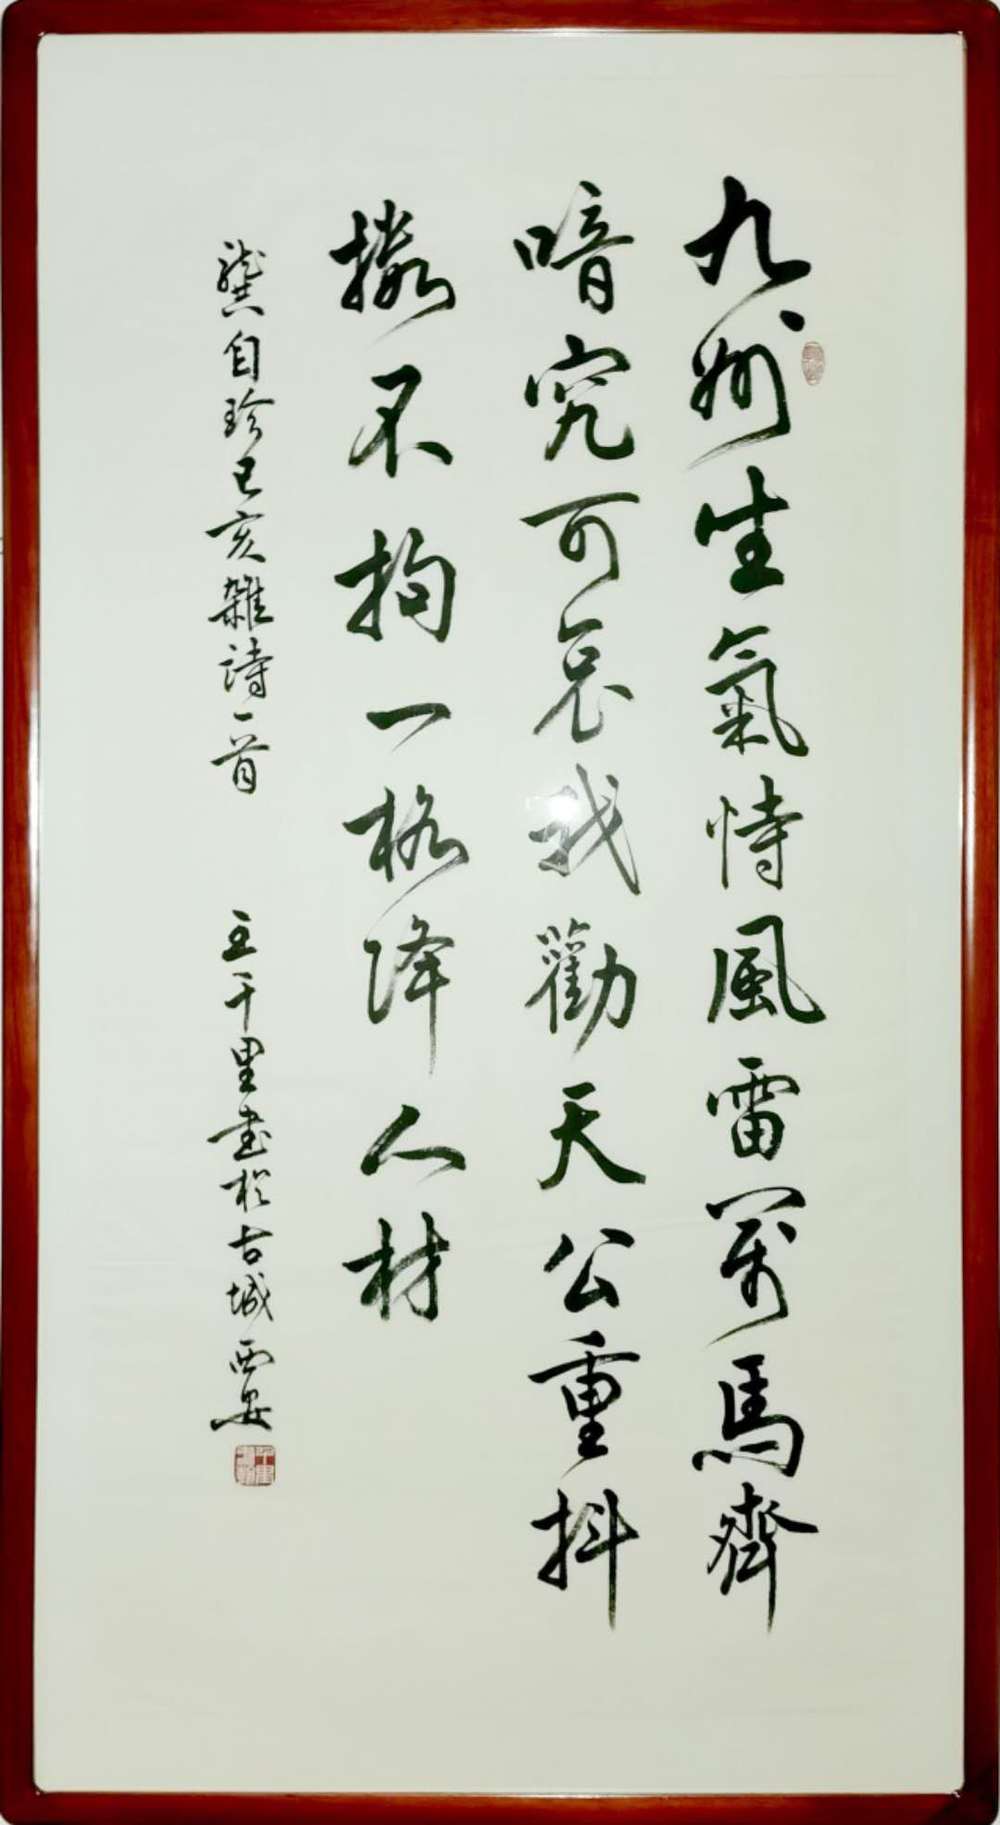 九州生氣恃風雷萬馬齊
喑究可哀我勸天公重抖
擻不拘一格降人材
龔自珍己亥雜詩一首 王千里書於古城西安